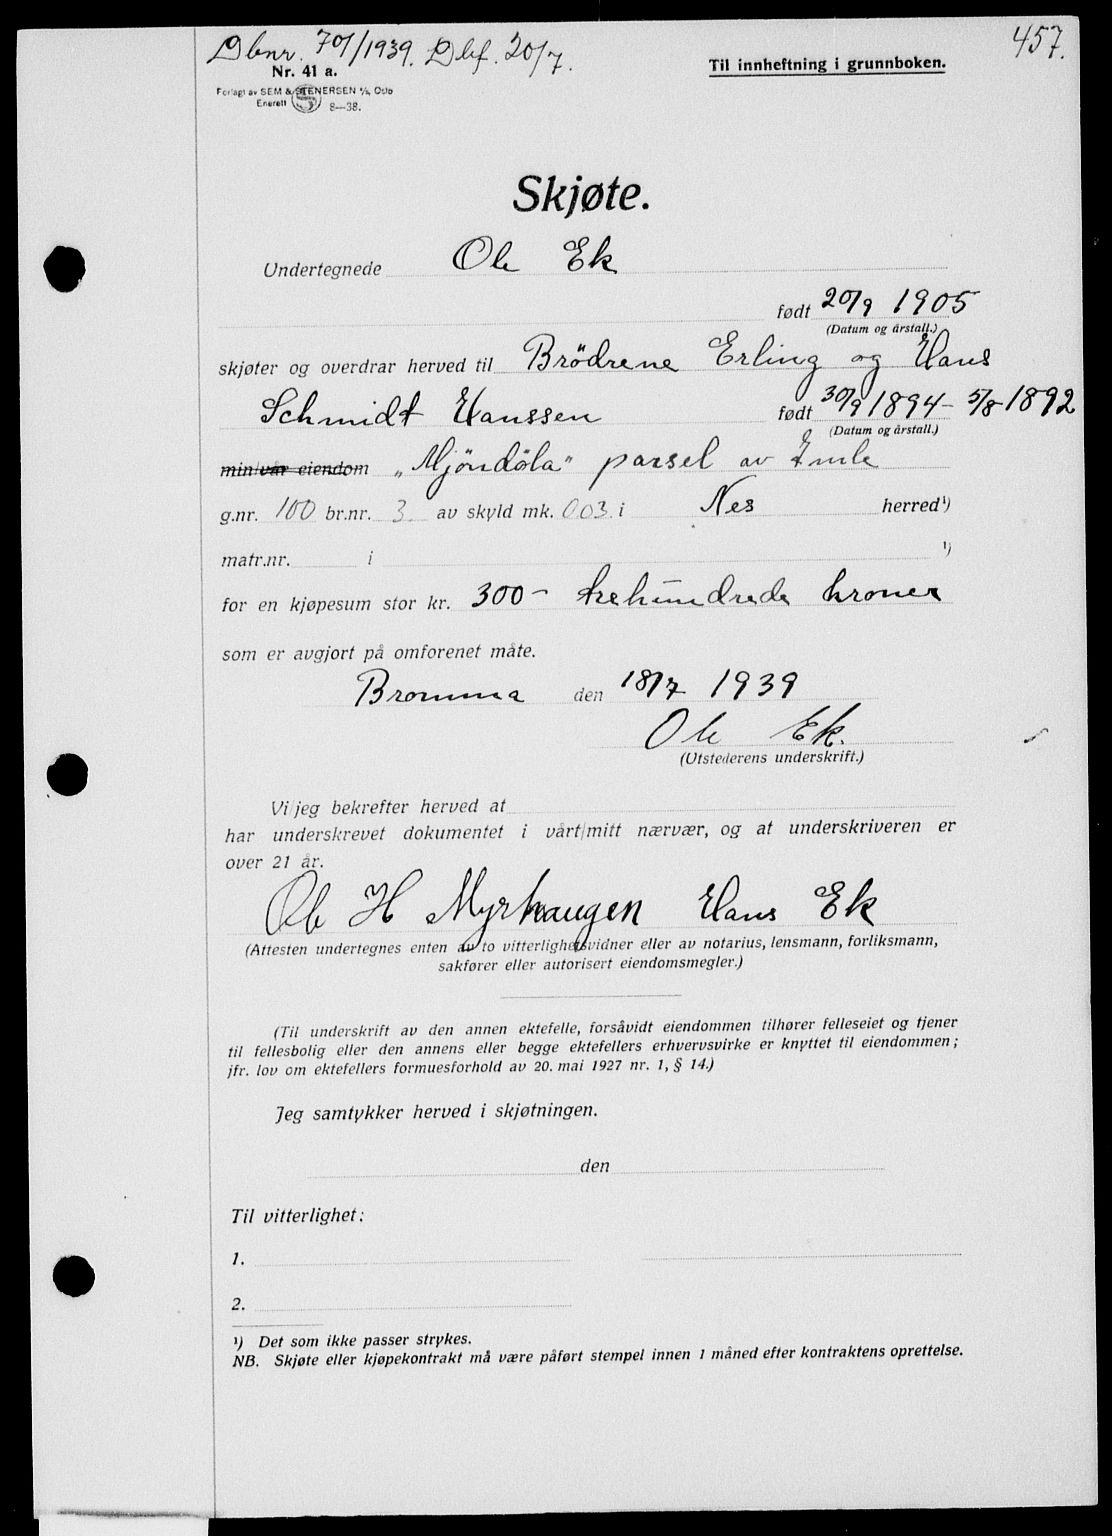 Dbnr. 701/1939. Dbf. 20/7.
457.
Nr. 41 a.
Til innheftning i grunnboken.
Forlagt av SEM & STENERSEN A/S, Oslo
Enerett 8—38.
Skjøte.
Undertegnede Ole Ek
født 20/9 1905
(Datum og årstall.)
skjøter og overdrar herved til Brödrene Erling og Hans
Schmidt Hanssen født 30/9 1894 - 5/8 1892
(Datum og årstall.)
min/vår eiendom „Mjöndöla" parsel av
g.nr. 100 br.nr. 3 av skyld mk. 0 03 i Nes herred¹)
matr.nr. i ¹)
for en kjøpesum stor kr. 300- trehundrede kroner
som er avgjort på omforenet måte.
Bromma den 18/7 1939
Ole Ek.
(Utstederens underskrift.)
Vi/jeg bekrefter herved at
har underskrevet dokumentet i vårt/mitt nærvær, og at underskriveren er
over 21 år.
Ole H Myrhaugen Hans Ek
(Attesten undertegnes enten av to vitterlighetsvidner eller av notarius, lensmann, forliksmann,
sakfører eller autorisert eiendomsmegler.)
(Til underskrift av den annen ektefelle, forsåvidt eiendommen tilhører felleseiet og tjener
til fellesbolig eller den annens eller begge ektefellers erhvervsvirke er knyttet til eiendommen;
jfr. lov om ektefellers formuesforhold av 20. mai 1927 nr. 1, § 14.)
Jeg samtykker herved i skjøtningen.
den
Til vitterlighet:
1.
2.
¹) Det som ikke passer strykes.
NB. Skjøte eller kjøpekontrakt må være påført stempel innen 1 måned efter kontraktens oprettelse.